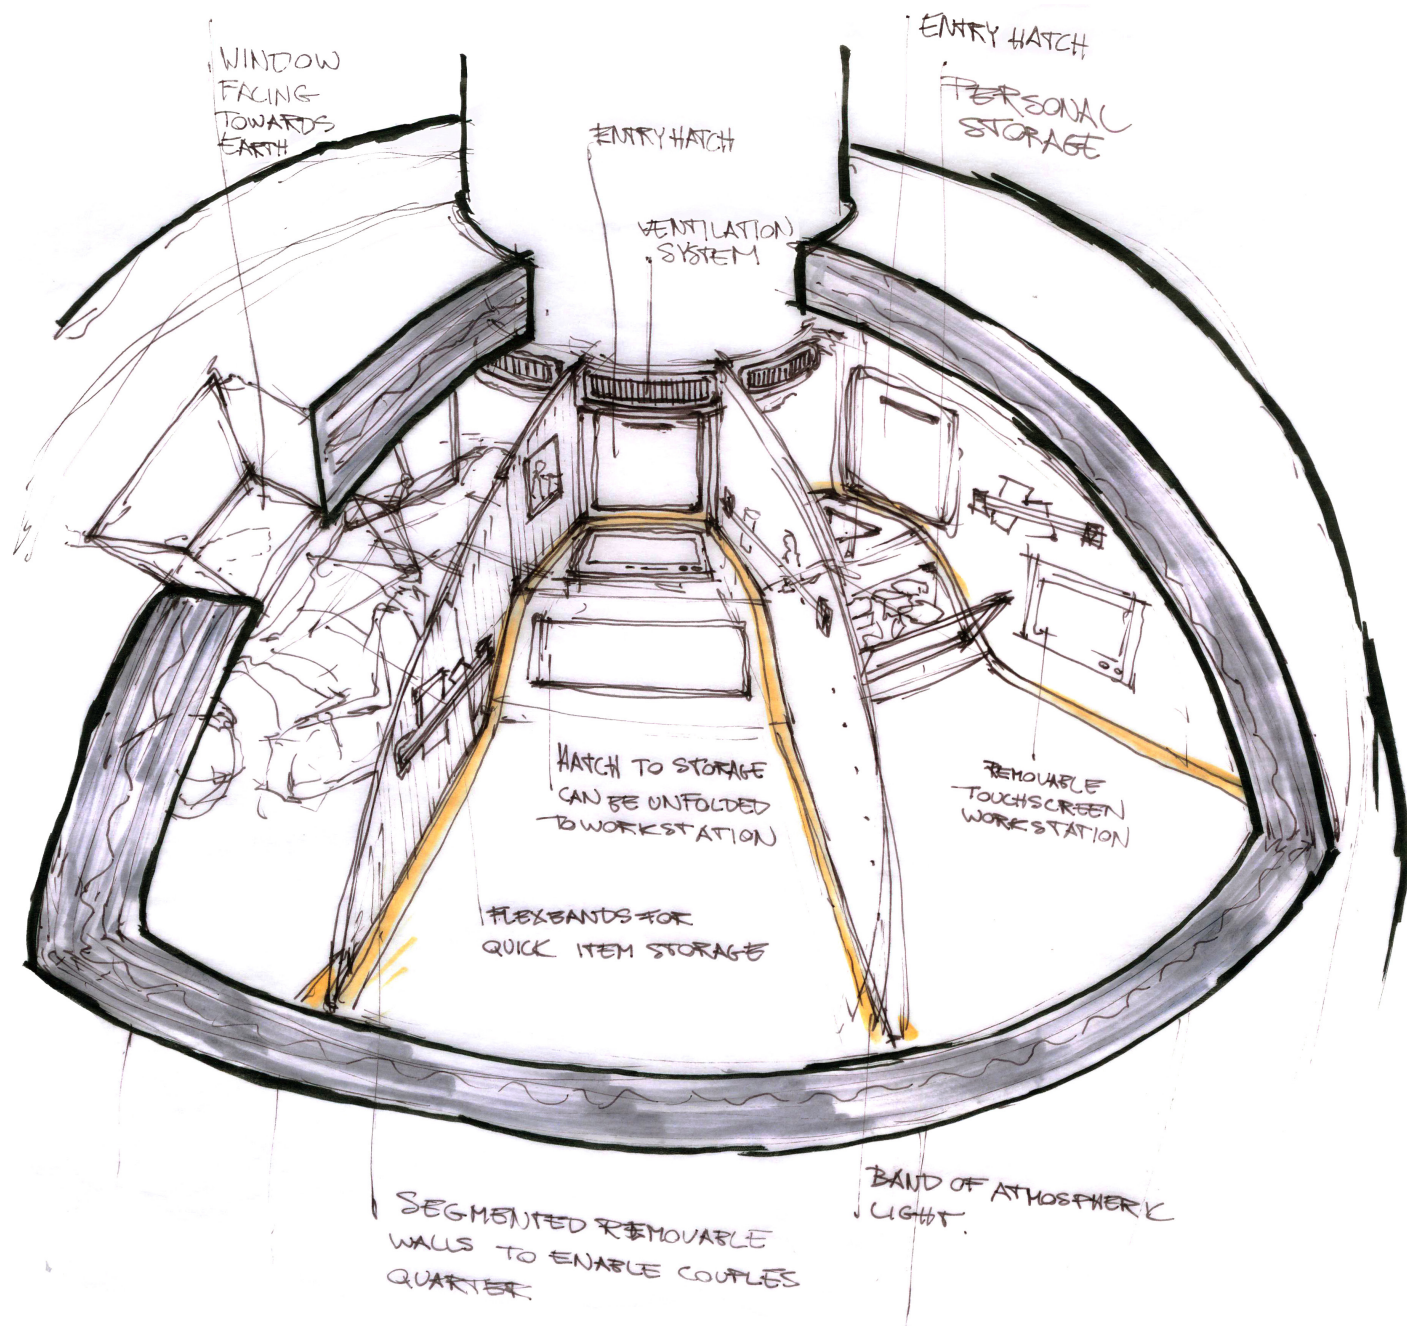 WINDOW
FACING
TOWARDS
EARTH
ENTRY HATCH
VENTILATION
SYSTEM
ENTRY HATCH
PERSONAL
STORAGE
HATCH TO STORAGE
CAN BE UNFOLDED
TO WORKSTATION
REMOVABLE
TOUCHSCREEN
WORKSTATION
FLEXBANDS FOR
QUICK ITEM STORAGE
SEGMENTED REMOVABLE
WALLS TO ENABLE COUPLES
QUARTER
BAND OF ATMOSPHERIC
LIGHT.